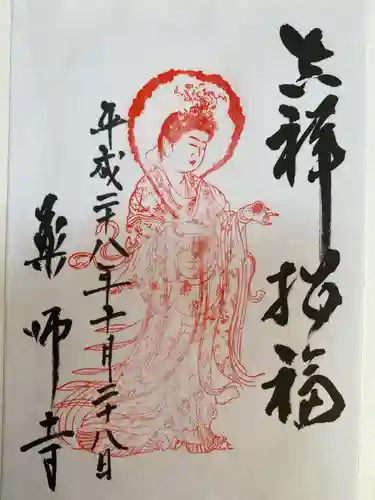 吉祥招福
平成二十八年十一月二十八日
薬師寺